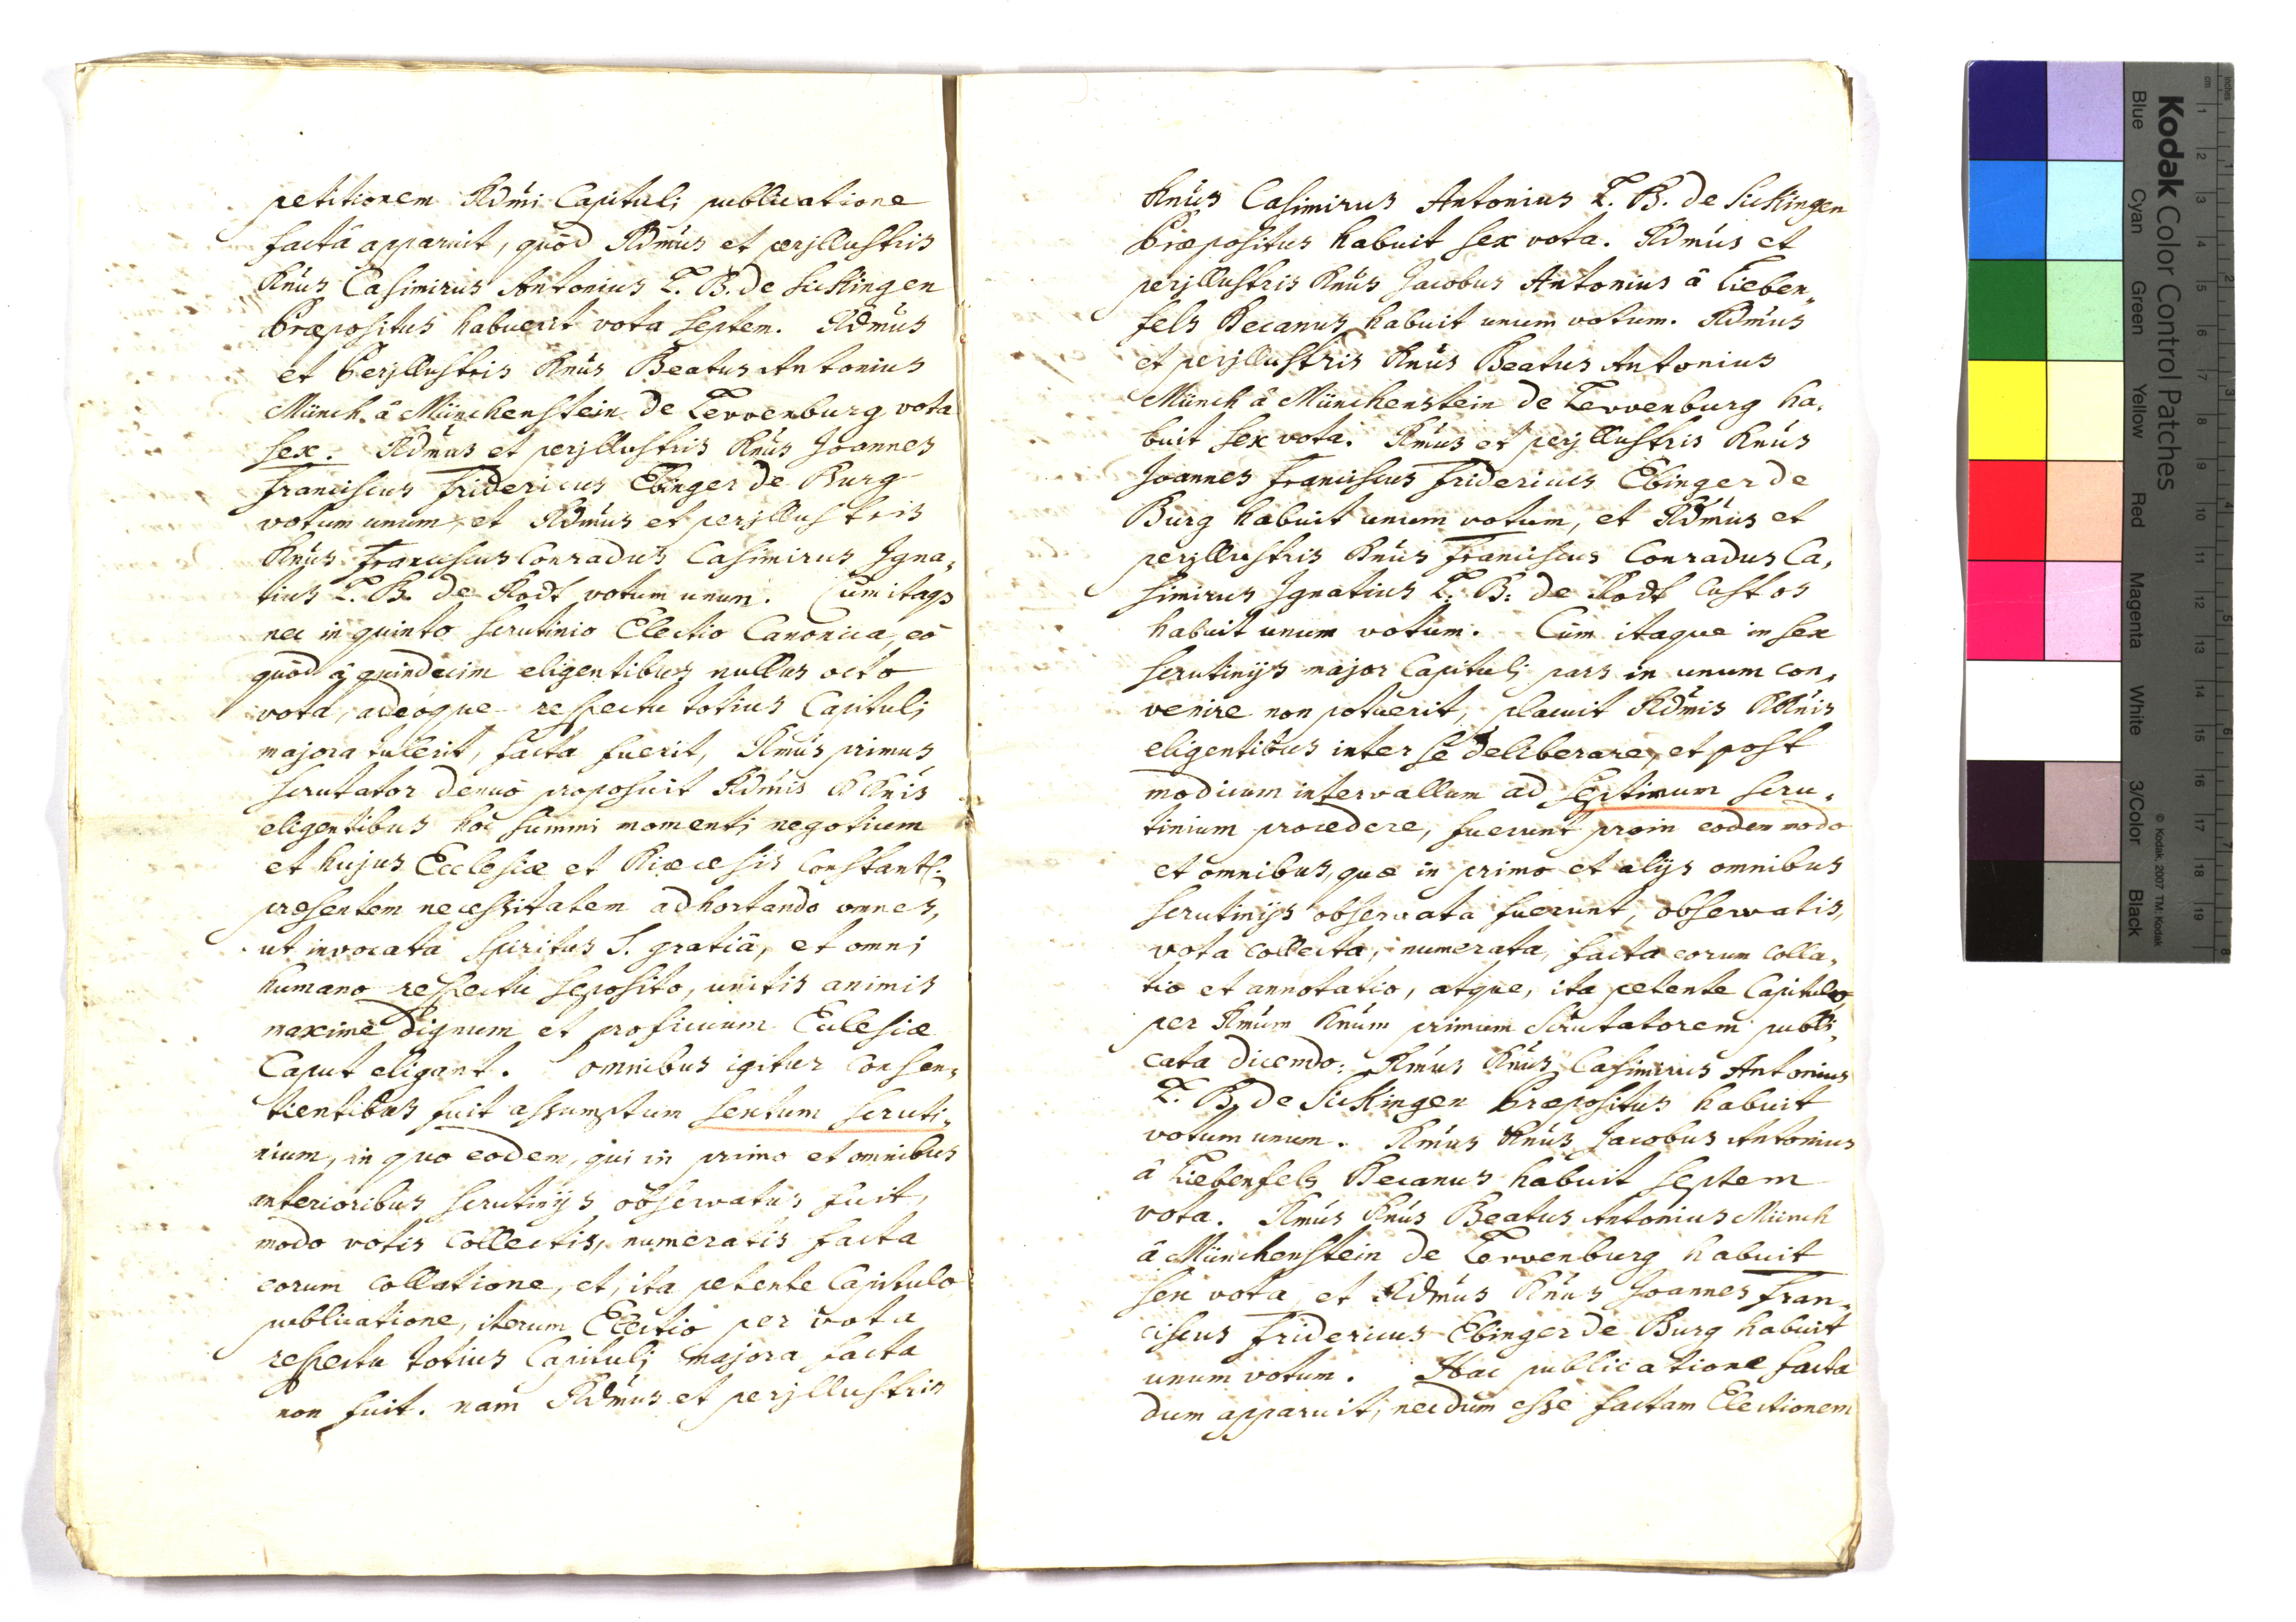 petitionem Rdmi Capituli publicatione
factâ apparuit, quòd Rdmus et perjllustris
Dnus Casimirus Antonius L. B. de Sickingen
Præpositus habuerit vota septem. Rdmus
et Perjllustris Dnus Beatus Antonius
Münch â Münchenstein de Levvenburg vota
sex. Rdmus et perjllustris Dnus Joannes
Franciscus Fridericus Ebinger de Burg
votum unum, et Rdmus et perjllustris
Dnus Franciscus Conradus Casimirus Igna,
tius L. B. de Rodt votum unum. Cùm itaqs
nec in quinto scrutinio Electio Canonica, eò
quòd â quindecim eligentibus nullus octo
vota, adeoque respectu totius Capituli
majora tulerit, facta fuerit, Rmus primus
scrutator denuò proposuit Rdmis DDnis
eligentibus hoc summi momenti negotium
et hujus Ecclesiæ et Diæcesis Constants:
præsentem necessitatem adhortando omnes,
ut invocata Spiritus S. gratiâ, et omni
humano respectu seposito, unitis animis
maximè dignum et proficuum Ecclesiæ
Caput eligant. omnibus igitur consen,
tientibus fuit assumptum sextum scruti,
nium, in quo eodem, qui in primo et omnibus
anterioribus scrutinijs observatus fuit,
modo votis collectis, numeratis facta
eorum collatione, et, ita petente Capitulo
publicatione, iterum Electio per vota
respectu totius Capituli majora facta
non fuit. nam Rdmus et perjllustris
Dnus Casimirus Antonius L. B. de Sickingen
Præpositus habuit sex vota. Rdmus et
perjllustris Dnus Jacobus Antonius â Lieben,,
fels Decanus habuit unum votum. Rdmus
et perjllustris Dnus Beatus Antonius
Münch â Münchenstein de Levvenburg ha,
buit sex vota. Rmus et perjllustris Dnus
Joannes Franciscus Fridericus Ebinger de
Burg habuit unum votum, et Rdmus et
perjllustris Dnus Franciscus Conradus Ca,
simirus Ignatius L. B. de Rodt Custos
habuit unum votum. Cùm itaque in sex
scrutinijs major Capituli pars in unum con,
venire non potuerit, placuit Rdmis DDnis
eligentibus inter se deliberare, et post
modicum intervallum ad septimum scru,
tinium procedere, fuerunt proin eodem modo
et omnibus, quæ in primo et alijs omnibus
scrutinijs observata fuerunt, observatis,
vota collecta, numerata, facta eorum colla,
tio et annotatio, atque, ita petente Capitulo
per Rmum Dnum primum Scrutatorem publi,
cata dicendo: Rmus Dnus Casimirus Antonius
L. B. de Sickingen Præpositus habuit
votum unum. Rmus Dnus Jacobus Antonius
â Liebenfels Decanus habuit septem
vota. Rmus Dnus Beatus Antonius Münch
â Münchenstein de Levvenburg habuit
sex vota, et Rdmus Dnus Joannes Fran,
ciscus Fridericus Ebinger de Burg habuit
unum votum. Hac publicatione facta
dum apparuit, necdum esse factam Electionem
Kodak Color Control Patches
© Kodak, 2007 TM: Kodak
Blue Cyan Green Yellow Red Magenta White 3/Color Black
cm 1 2 3 4 5 6 7 8 9 10 11 12 13 14 15 16 17 18 19
inches 1 2 3 4 5 6 7 8